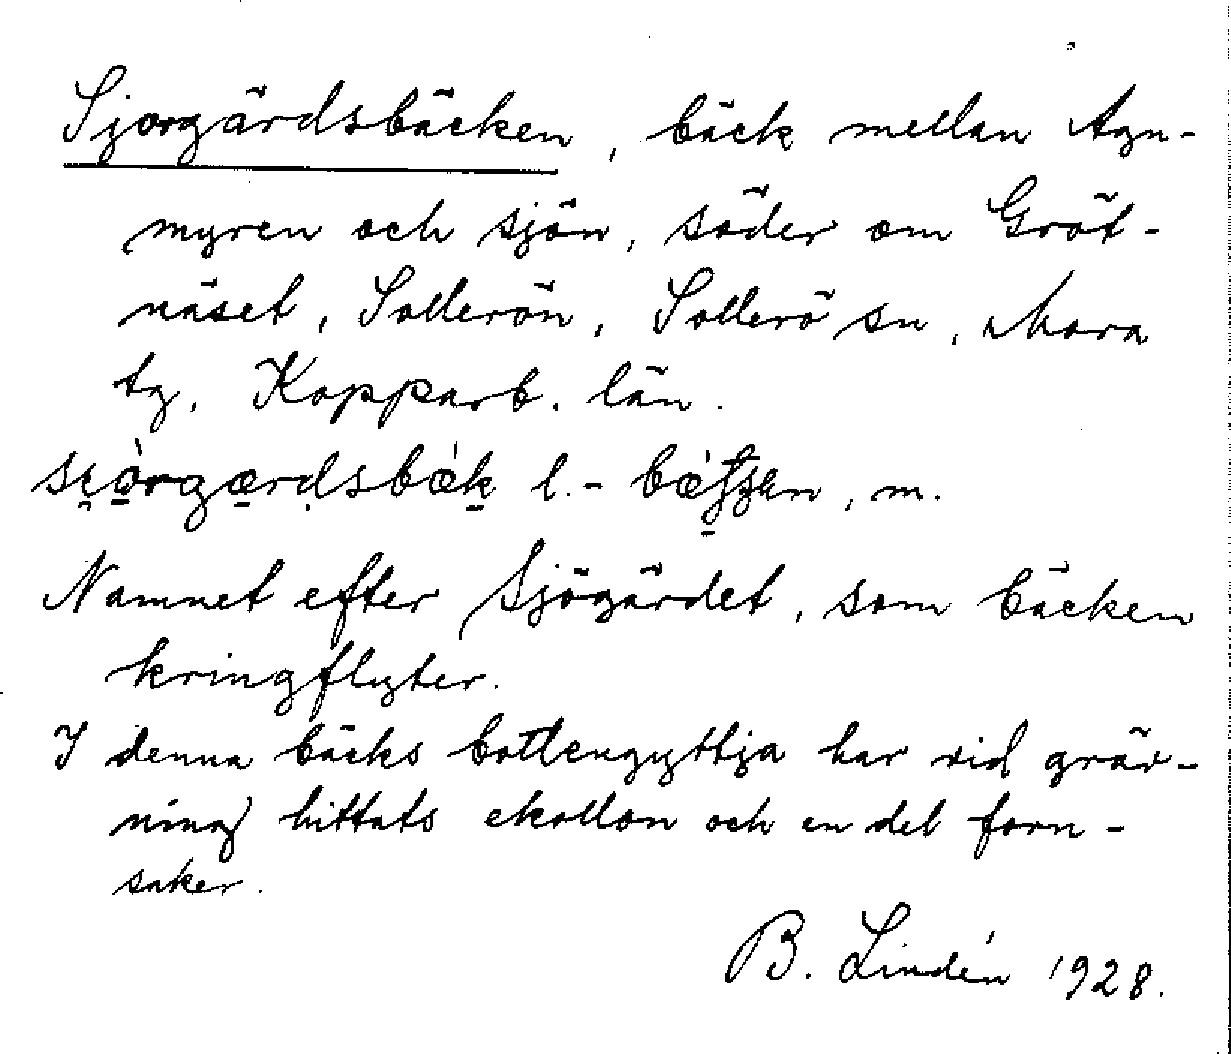 Sjorgärdsbäcken, bäck mellan Agn-
myren och sjön, söder om Gröt-
näset, Sollerön, Sollerö sn, Mora
tg, Kopparb. län.
l. - m.
Namnet efter Sjögärdet, som bäcken
kringflyter.
I denna bäcks bottengyttja har vid gräv-
ning hittats ekollon och en del forn-
saker.
B. Lindén 1928.